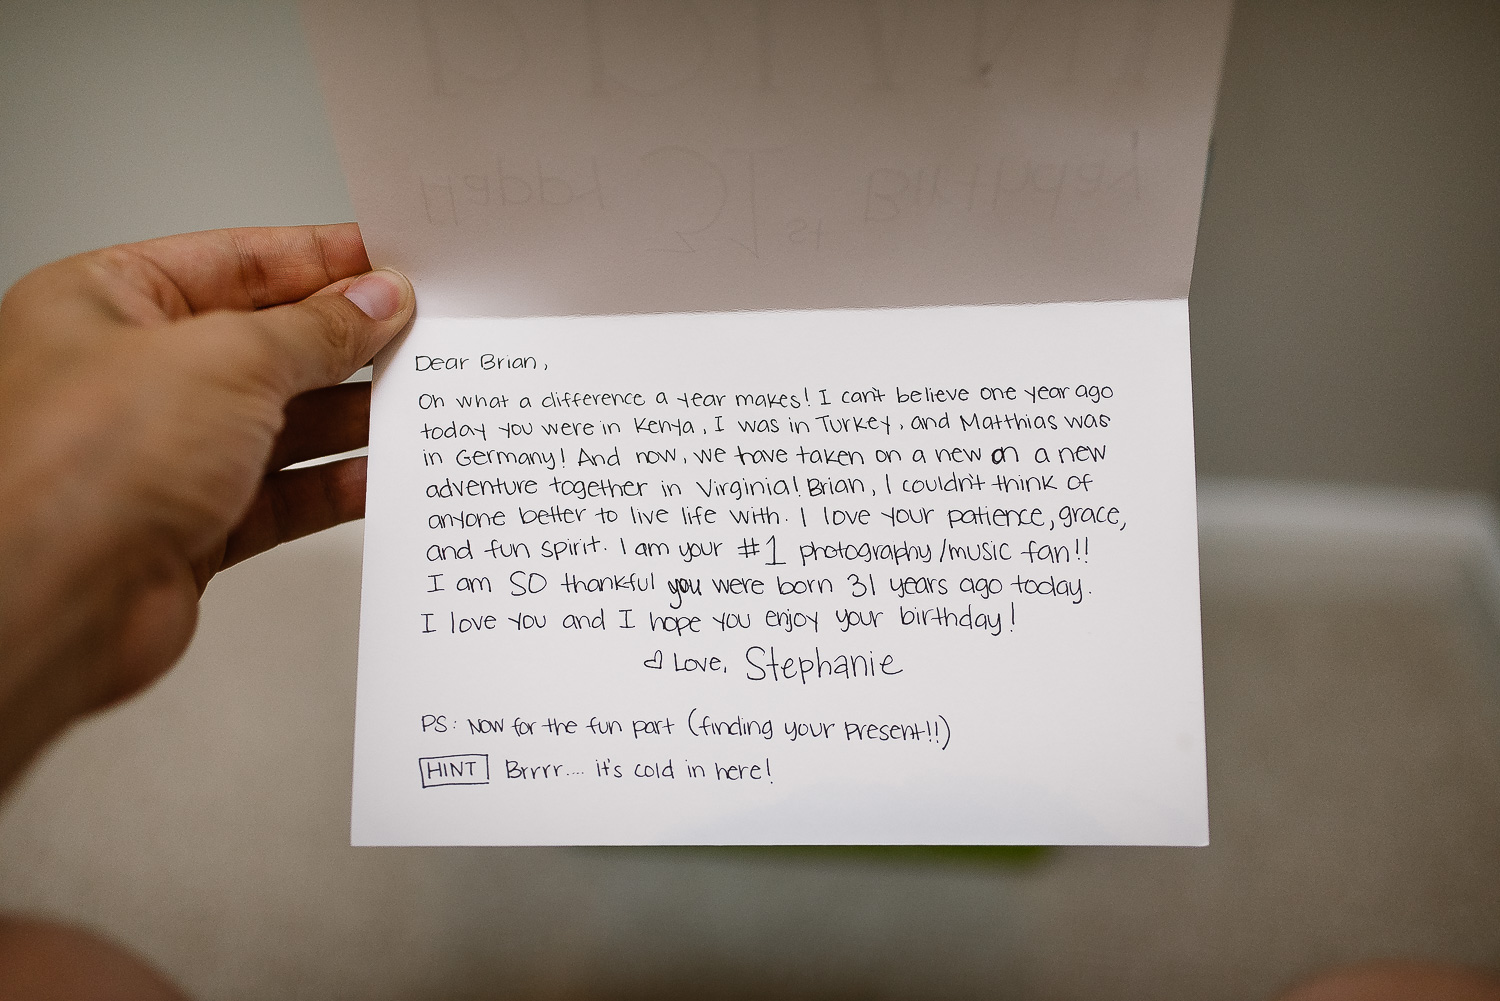 Dear Brian,
Oh what a difference a year makes! I can't believe one year ago
today you were in Kenya, I was in Turkey, and Matthias was
in Germany! And now, we have taken on a new on a new
adventure together in Virginia! Brian, I couldn't think of
anyone better to live life with. I love your patience, grace,
and fun spirit. I am your #1 photography/music fan!!
I am SO thankful you were born 31 years ago today.
I love you and I hope you enjoy your birthday!
♡ Love, Stephanie
PS: Now for the fun part (finding your present!!)
HINT Brrrr.... it's cold in here!